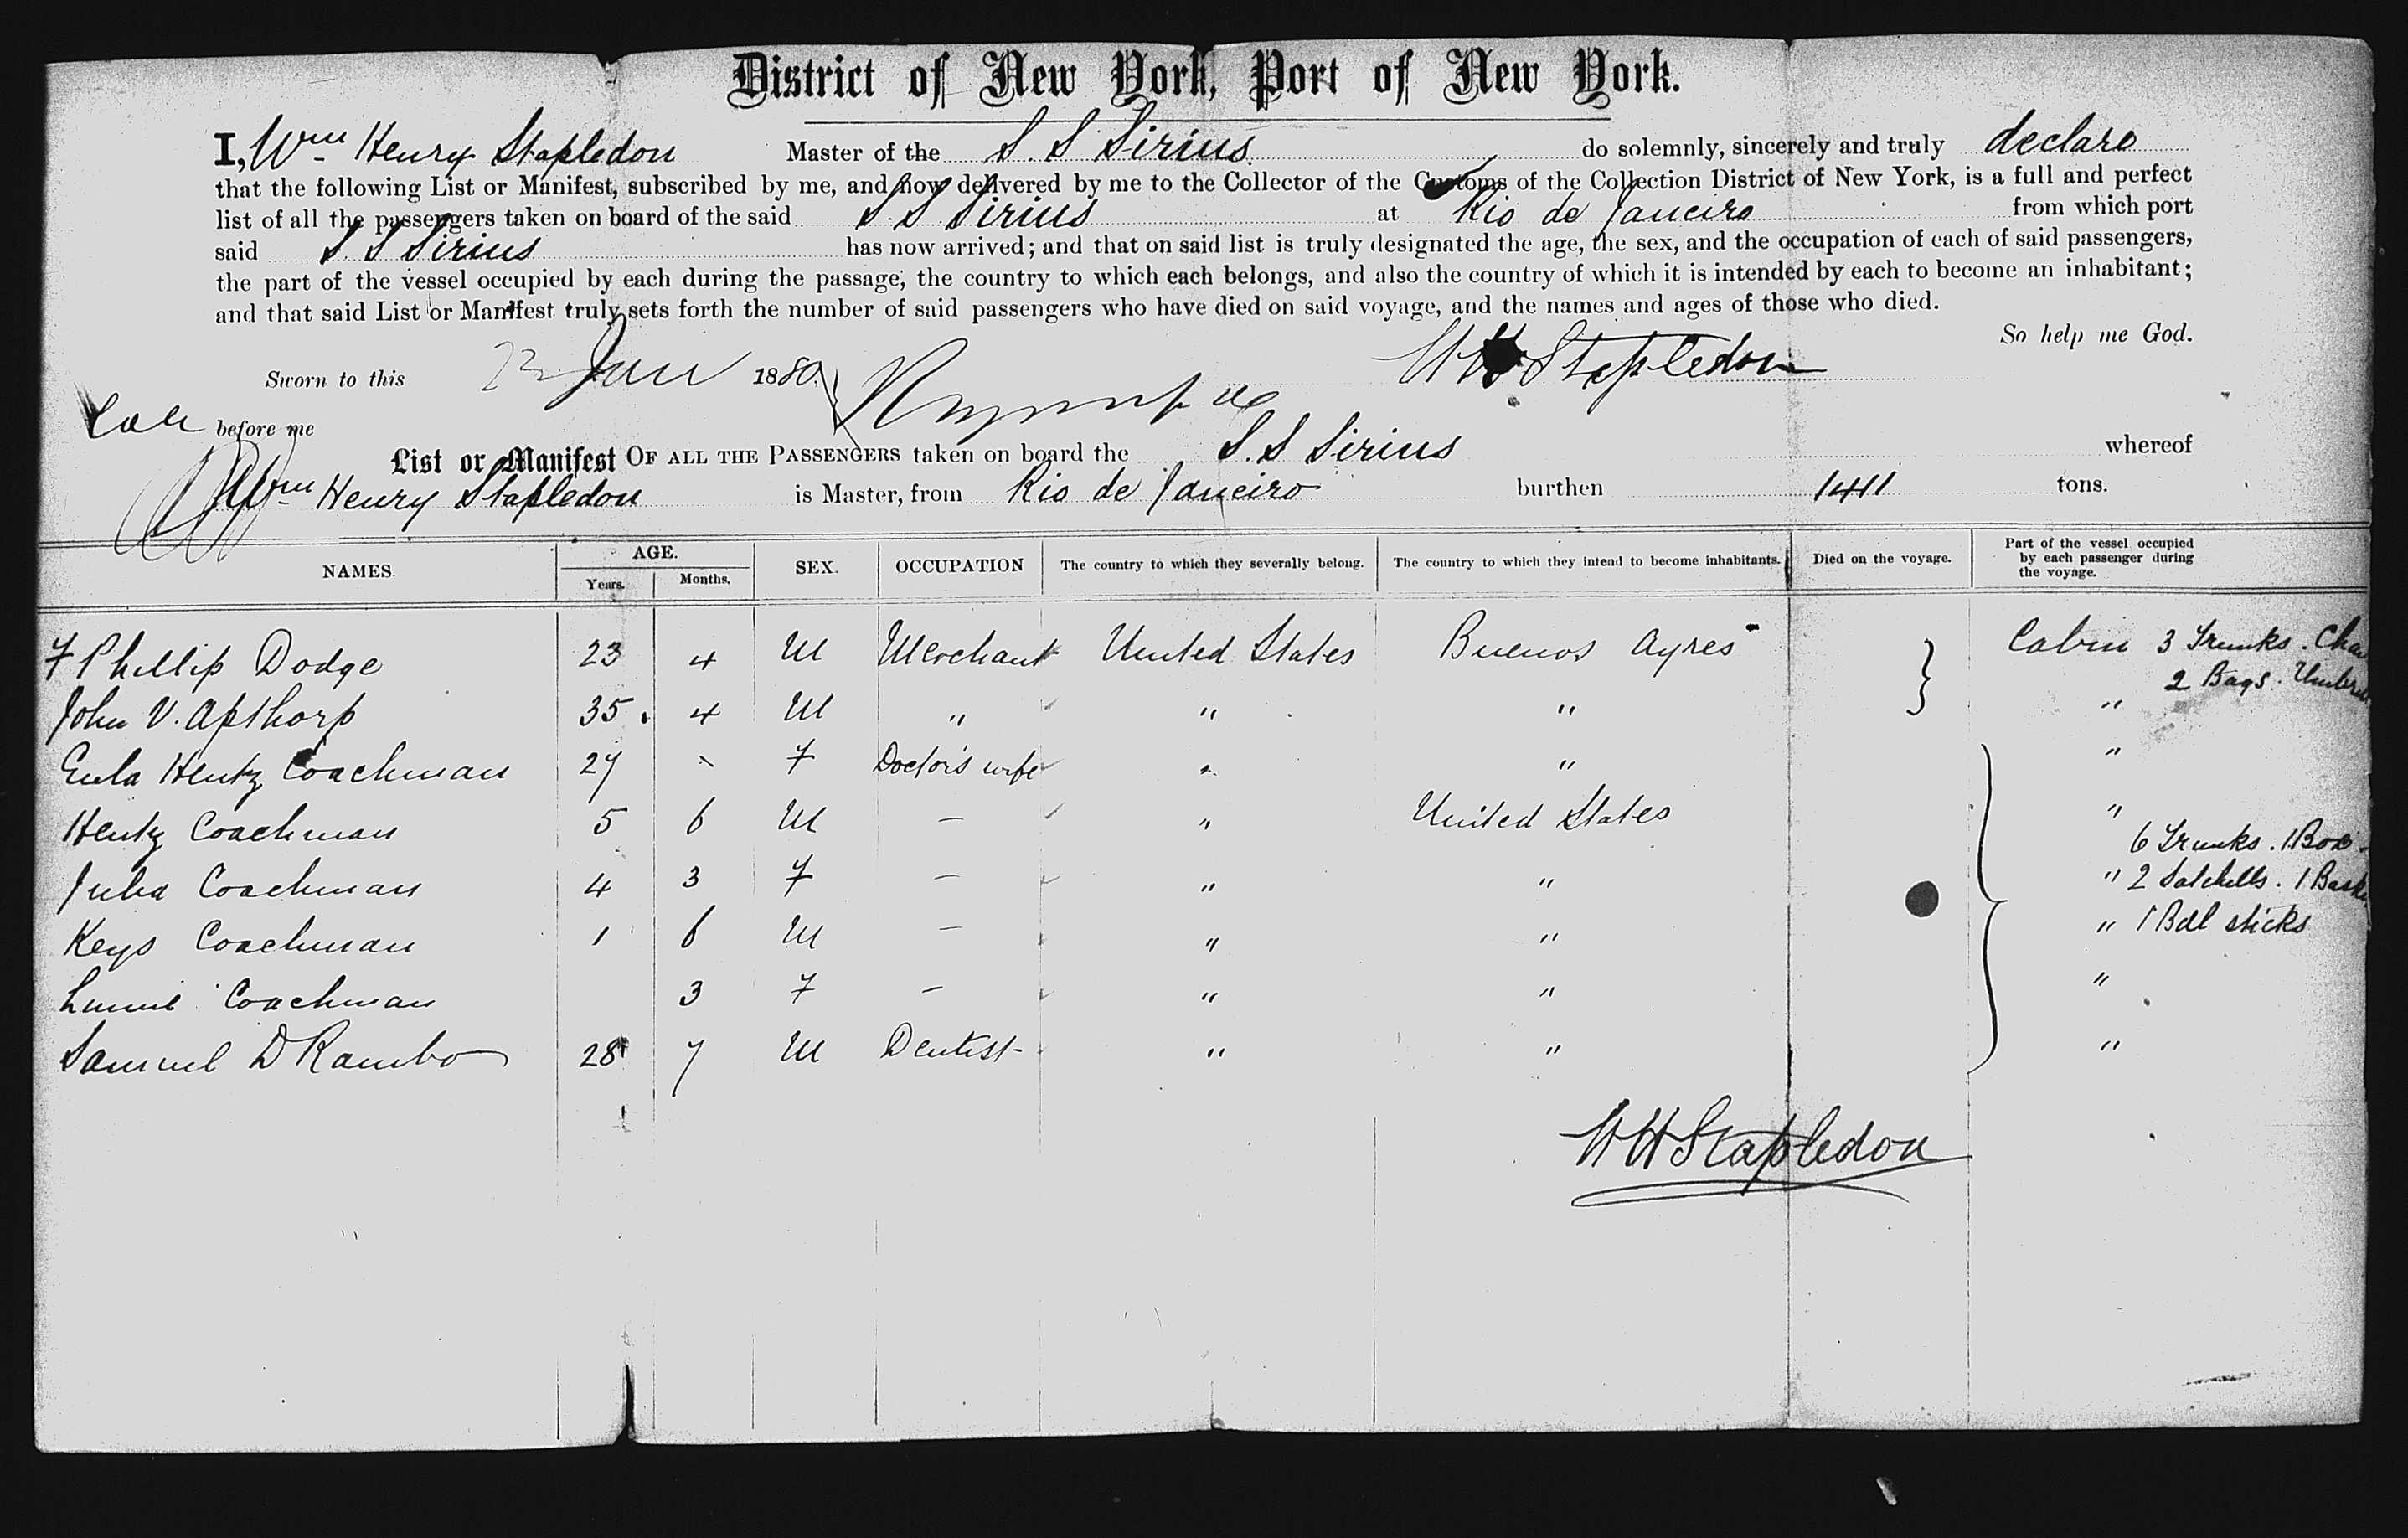 District of New York, Port of New York.
I, Wm Henry Stapledon Master of the S. S Sirius do solemnly, sincerely and truly declare
that the following List or Manifest, subscribed by me, and now delivered by me to the Collector of the Customs of the Collection District of New York, is a full and perfect
list of all the passengers taken on board of the said S. S Sirius at Rio de Janeiro from which port
said S. S Sirius has now arrived; and that on said list is truly designated the age, the sex, and the occupation of each of said passengers,
the part of the vessel occupied by each during the passage, the country to which each belongs, and also the country of which it is intended by each to become an inhabitant;
and that said List or Manifest truly sets forth the number of said passengers who have died on said voyage, and the names and ages of those who died.
So help me God.
Sworn to this Jan 1880 WH Stapledon
before me
List or Manifest OF ALL THE PASSENGERS taken on board the S. S Sirius whereof
Wm Henry Stapledon is Master, from Rio de Janeiro burthen 1411 tons.
NAMES. AGE. Years. Months. SEX. OCCUPATION The country to which they severally belong. The country to which they intend to become inhabitants. Died on the voyage. Part of the vessel occupied by each passenger during the voyage.
F Phillip Dodge 23 4 M Merchant United States Buenos Ayres Cabin 3 Trunks. Chai
2 Bags. Umbre
John V. Apthorp 35. 4 M " " " "
Eula Hentz Coachman 27 F Doctor's wife " " "
Hentz Coachman 5 6 M — " United States "
6 Trunks. 1 Box.
Julia Coachman 4 3 F — " " " 2 Satchells. 1 Baske
Keys Coachman 1 6 M — " " " 1 Bdl sticks
Coachman 3 F — " " "
Samuel D Rambo 28 7 M Dentist " " "
WH Stapledon